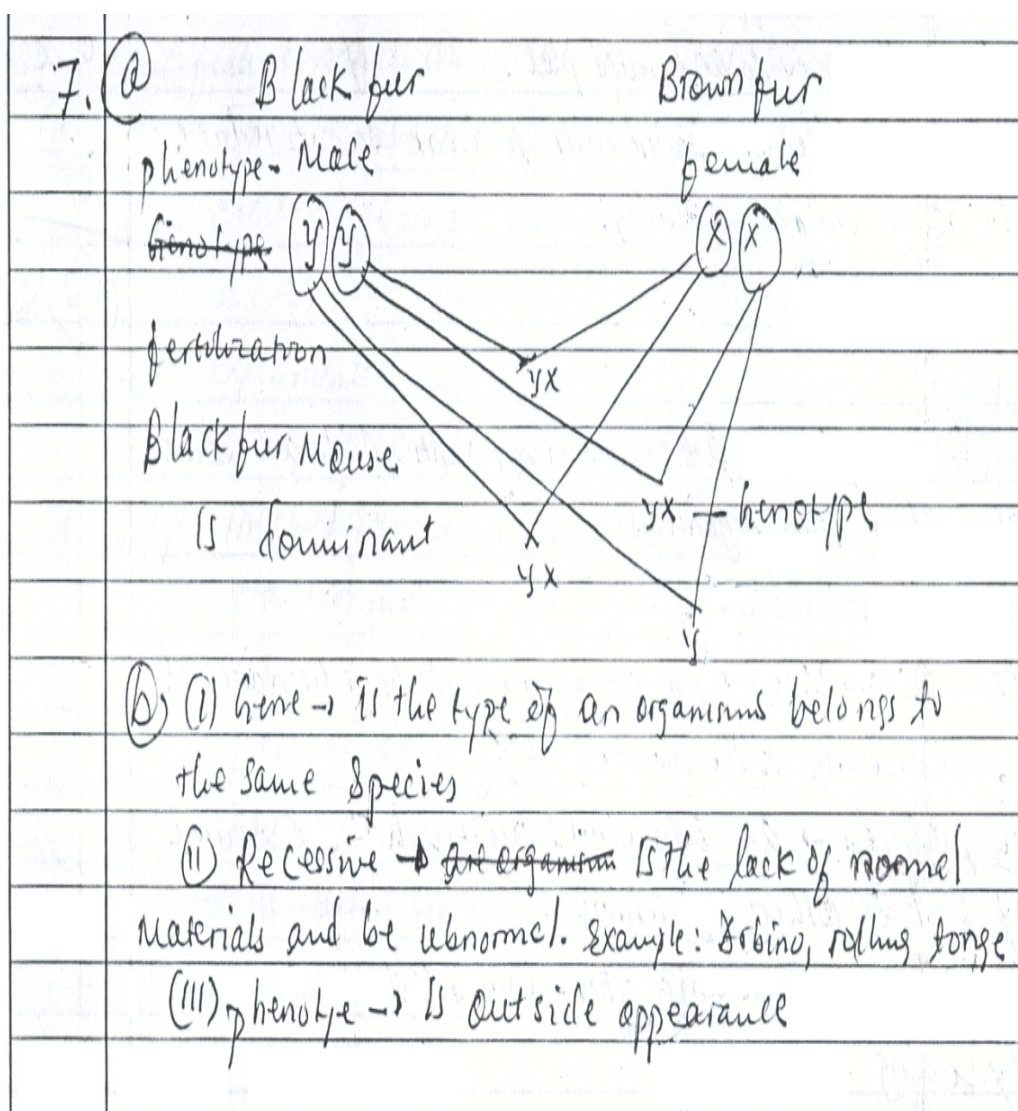 7. (a) Black fur Brown fur
phenotype - Male female
Genotype y y x x
fertilization
yx
Black fur Mouse
yx — henotype
Is dominant
yx
y
(b) (i) Gene → Is the type of an organisms belongs to
the same species
(ii) Recessive → the organism Is the lack of normal
Materials and be abnormal. Example: Arbino, rolling tonge
(iii) phenotye → Is outside appearance